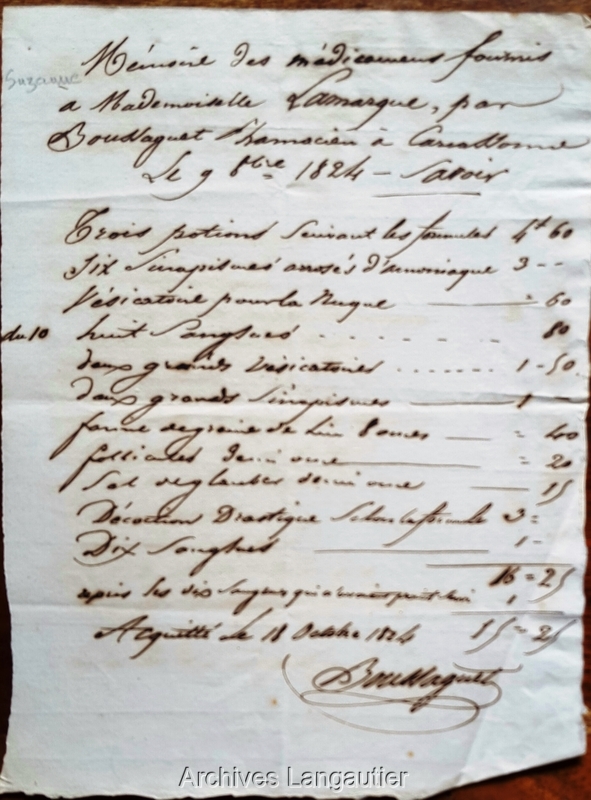 Mémoire des médicamens fournis
Suzanne
a Mademoiselle Lamarque, par
Boussaguet Pharmacien à Carcassonne
Le 9 8bre 1824 – Savoir
Trois potions Suivant les formules 4f 60
Six Sinapismes arrosés d'amoniaque 3 --
Vésicatoire pour la Nuque = 60
du 10 huit Sangsues 80
deux grands Vésicatoires 1 - 50
deux grands Sinapismes 1
farine de graine de Lin 8 onces = 40
follicules demi once = 20
Sel de glauber demi once 15
Décoction Drastique Selon la formule 3 =
Dix Sangsues 1 -
16 = 25
les dix 1
Acquitté Le 18 Octobre 1824 15 = 25
Boussaguet
Archives Langautier